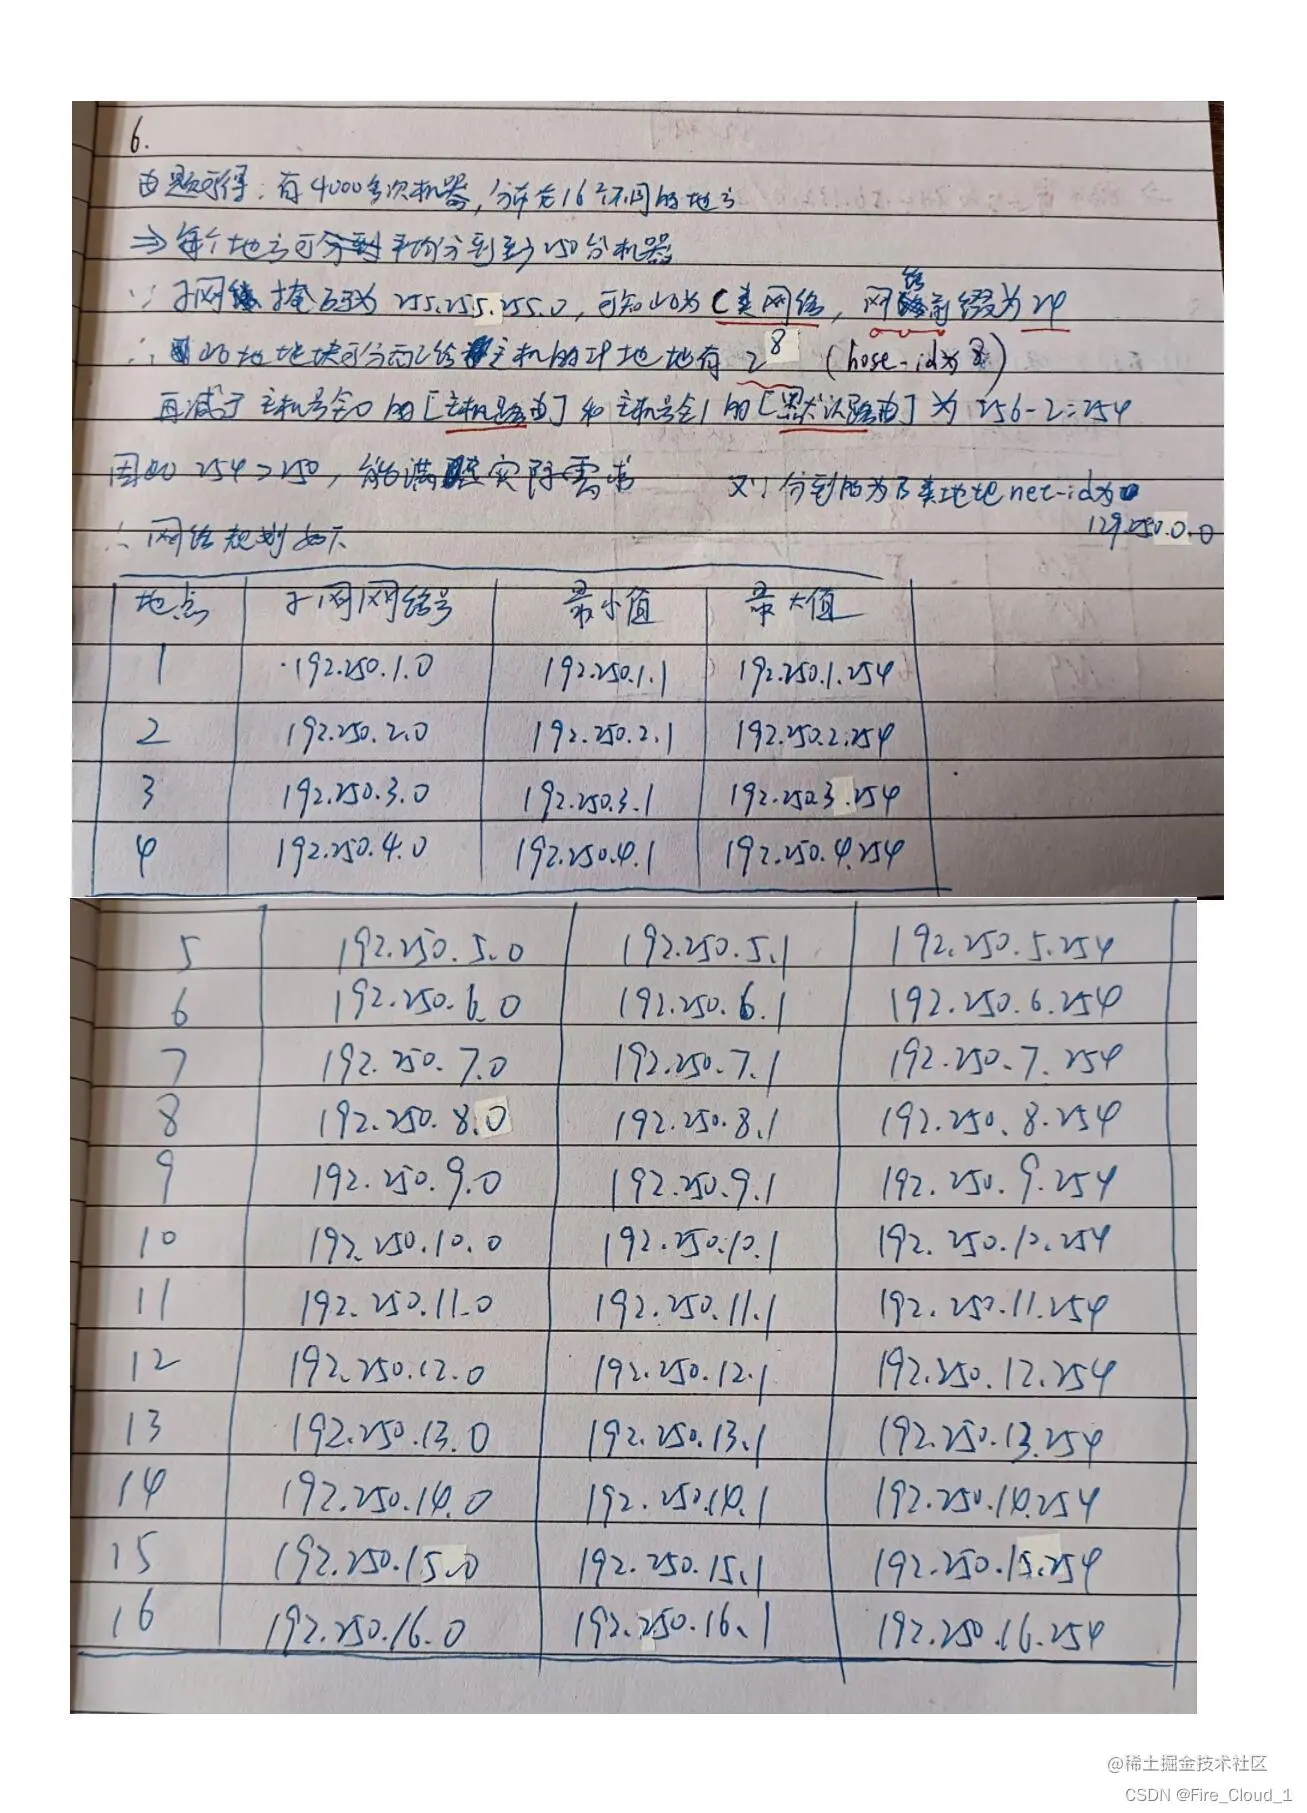 6.
由题可得：有4000多次机器，分布在16个不同的地方
⇒每个地方可分到平均分到到250台机器
∵子网掩码为255.255.255.0，可知此为C类网络，网络前缀为24
∴此地址块可分配给主机的IP地址有2^8 (hose-id为8)
再减了主机号全0的[主机路由]和主机号全1的[默认路由]为256-2=254
因此254>250，能满足实际需求 又∵分到的为B类地址net-id为
129.250.0.0
∴网络规划如下
地点 子网网络号 最小值 最大值
1 192.250.1.0 192.250.1.1 192.250.1.254
2 192.250.2.0 192.250.2.1 192.250.2.254
3 192.250.3.0 192.250.3.1 192.250.3.254
4 192.250.4.0 192.250.4.1 192.250.4.254
5 192.250.5.0 192.250.5.1 192.250.5.254
6 192.250.6.0 192.250.6.1 192.250.6.254
7 192.250.7.0 192.250.7.1 192.250.7.254
8 192.250.8.0 192.250.8.1 192.250.8.254
9 192.250.9.0 192.250.9.1 192.250.9.254
10 192.250.10.0 192.250.10.1 192.250.10.254
11 192.250.11.0 192.250.11.1 192.250.11.254
12 192.250.12.0 192.250.12.1 192.250.12.254
13 192.250.13.0 192.250.13.1 192.250.13.254
14 192.250.14.0 192.250.14.1 192.250.14.254
15 192.250.15.0 192.250.15.1 192.250.15.254
16 192.250.16.0 192.250.16.1 192.250.16.254
@稀土掘金技术社区
CSDN @Fire_Cloud_1